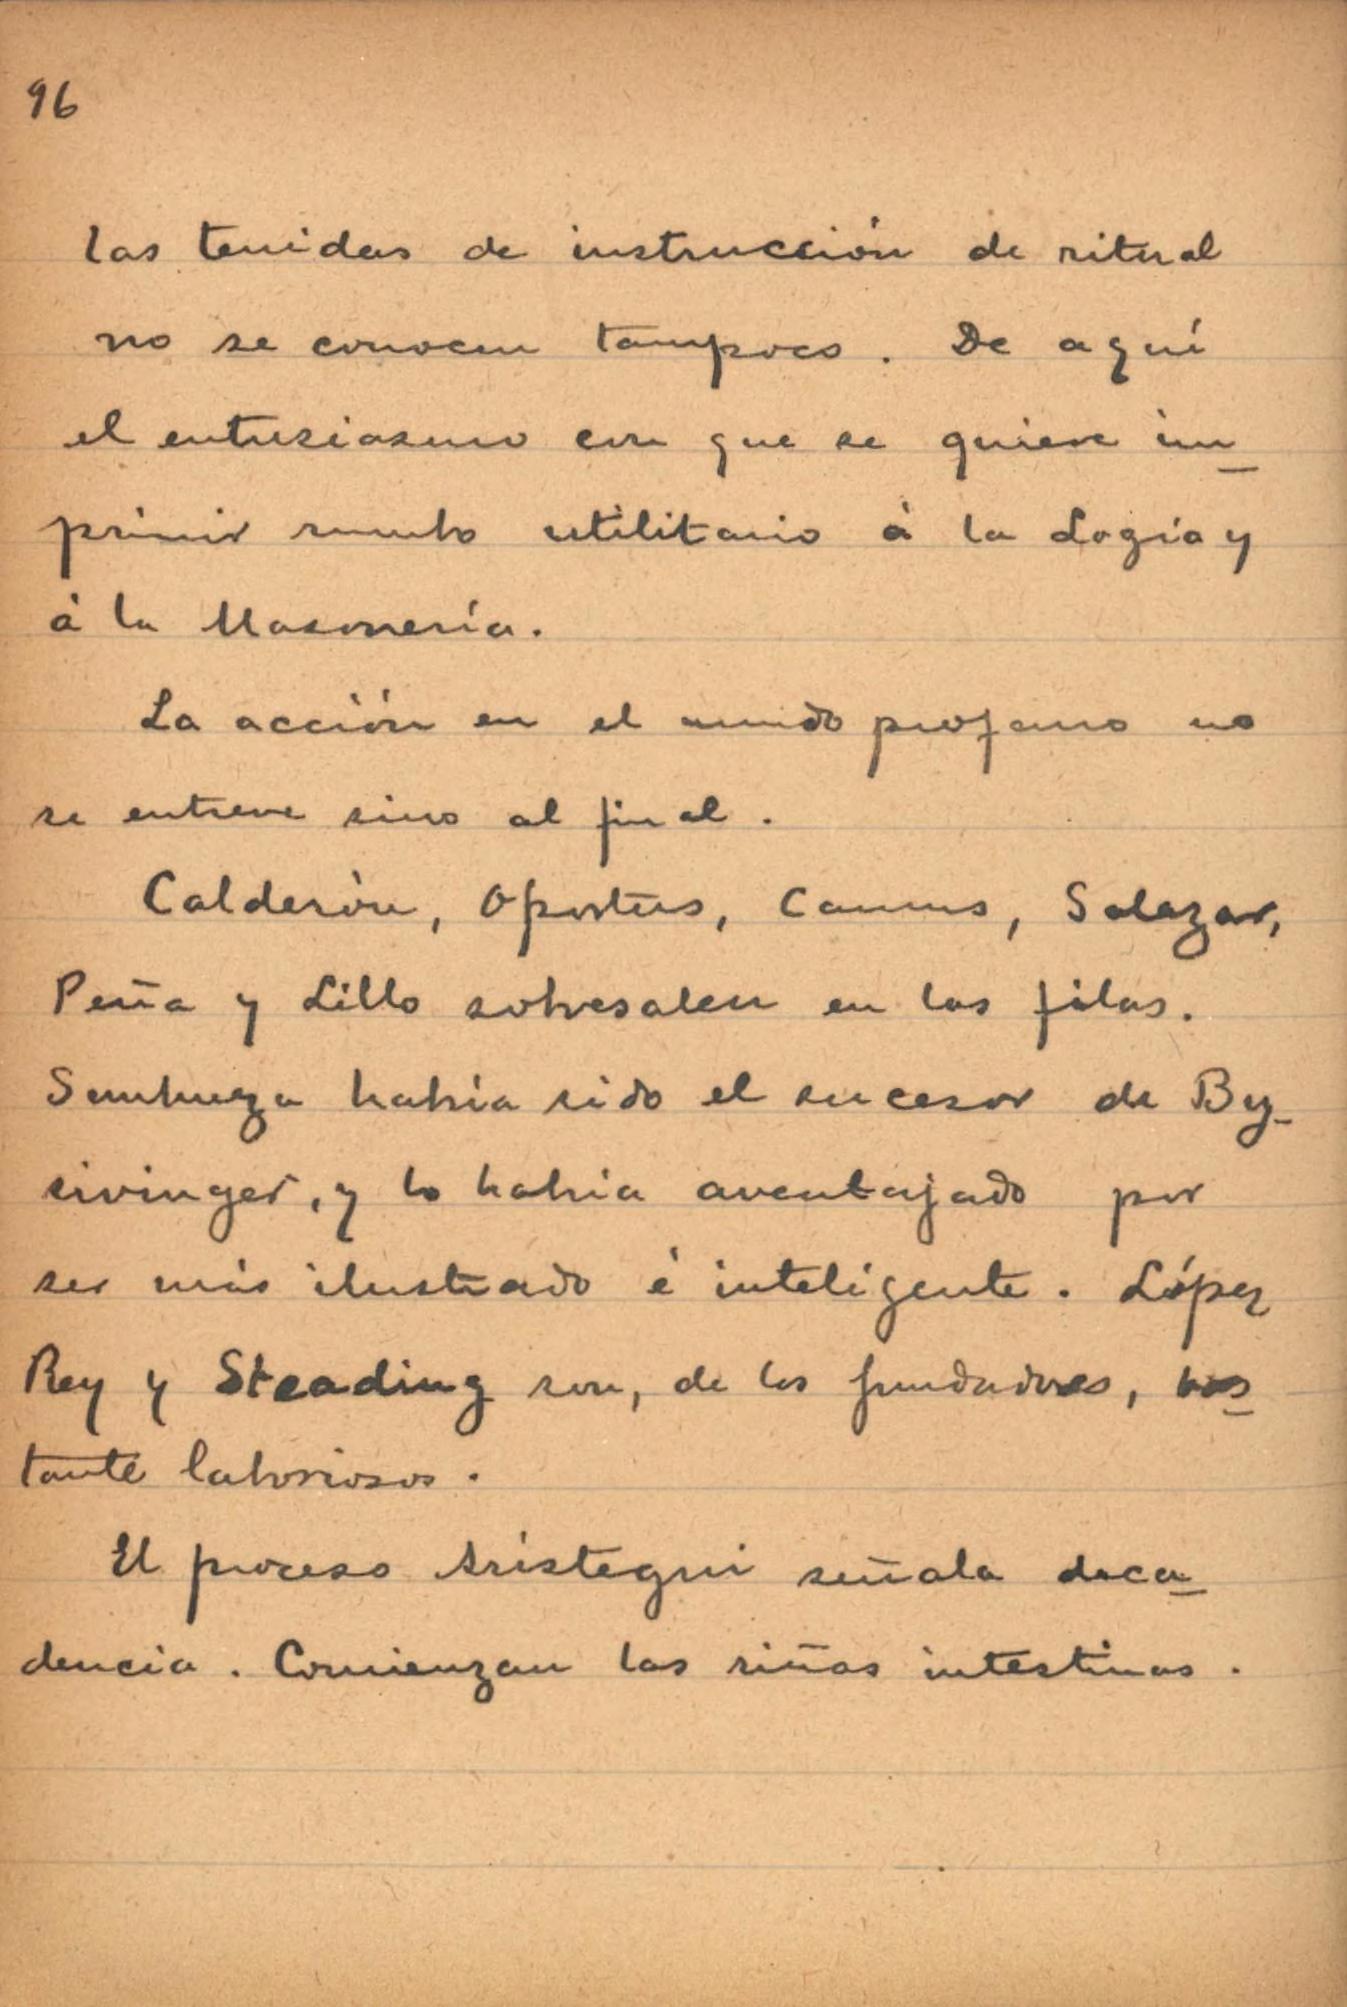 96
las tenidas de instrucción de ritual
no se conocen tampoco. De aquí
el entusiasmo con que se quiere im_
primir rumbo utilitario á la Logia y
á la Masonería.
La acción en el mundo profano no
se entreve sino al final.
Calderón, Oportus, Camus, Salazar,
Peña y Lillo sobresalen en las filas.
Sanhueza había sido el sucesor de By-
sivinger, y lo había aventajado por
ser más ilustrado é inteligente. López
Rey y Steading son, de los fundadores, bas_
tante laboriosos.
El proceso Aristegui señala deca_
dencia. Comienzan las riñas intestinas.